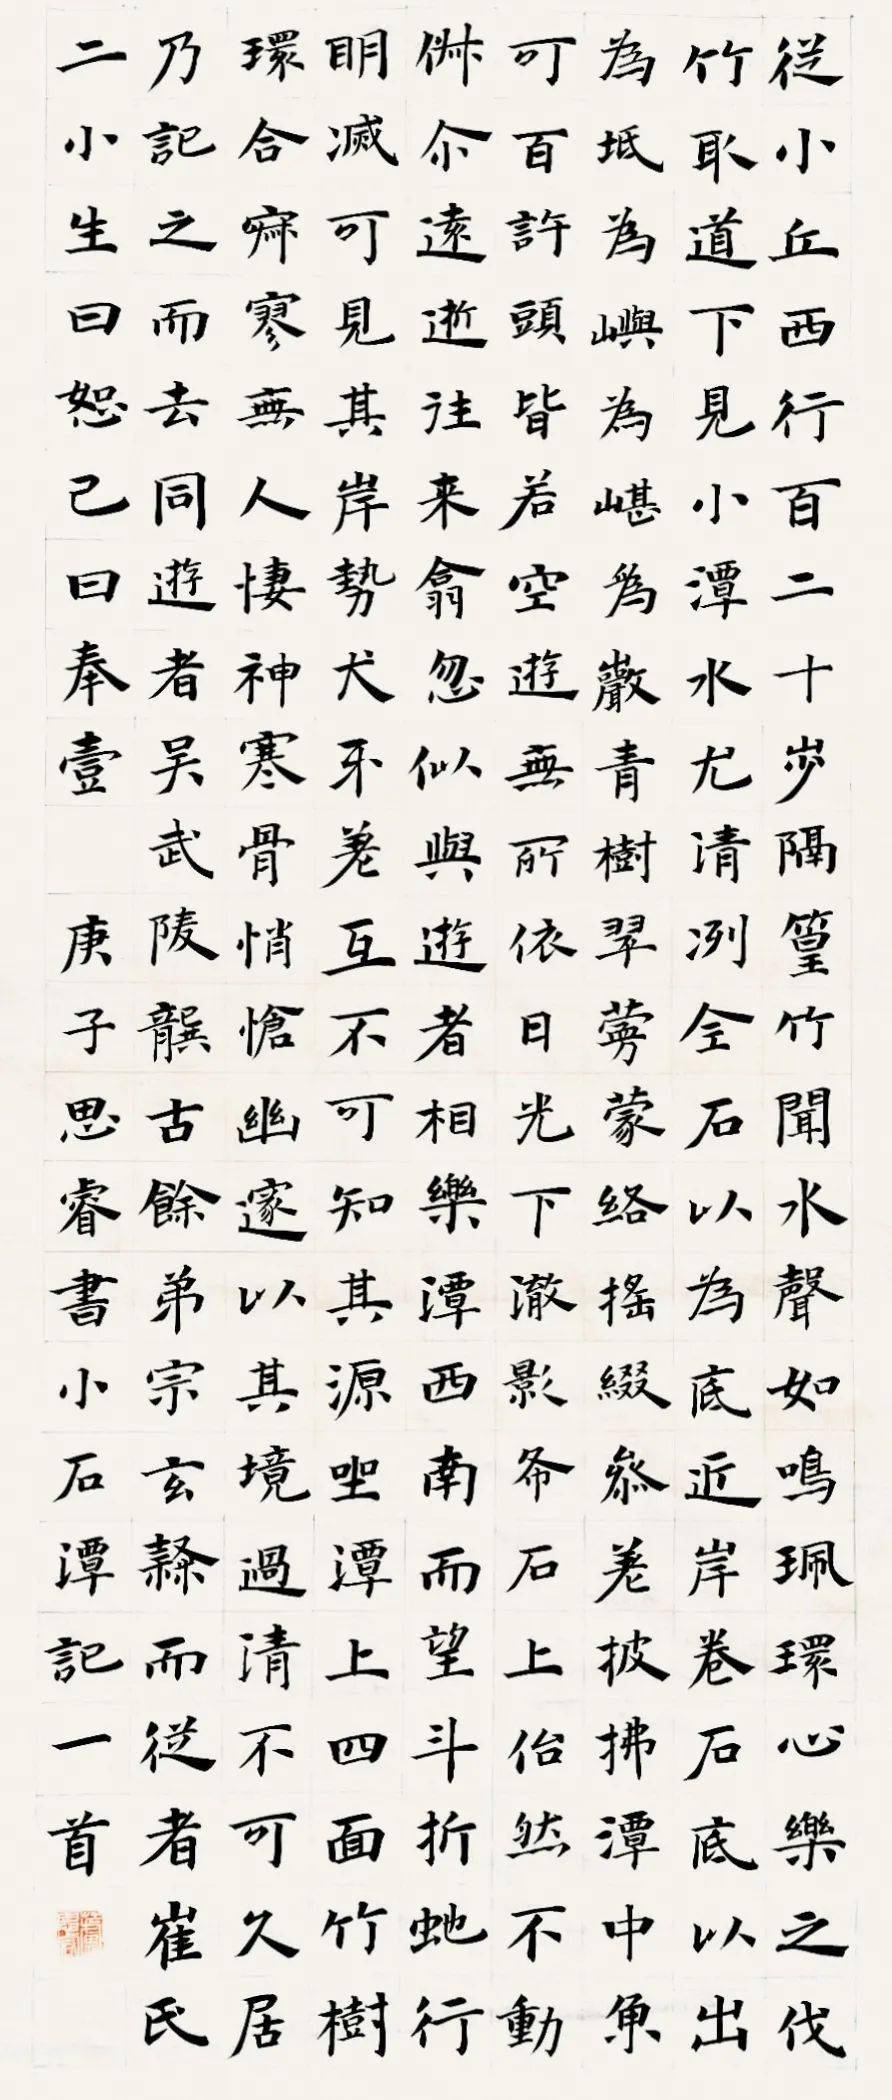 從小丘西行百二十步隔篁竹聞水聲如鳴珮環心樂之伐
竹取道下見小潭水尤清冽全石以為底近岸卷石底以出
為坻為嶼為嵁為巖青樹翠蔓蒙絡搖綴參差披拂潭中魚
可百許頭皆若空遊無所依日光下澈影布石上佁然不動
俶尒遠逝往来翕忽似與遊者相樂潭西南而望斗折虵行
明滅可見其岸勢犬牙差互不可知其源坐潭上四面竹樹
環合寂寥無人悽神寒骨悄愴幽邃以其境過清不可久居
乃記之而去同遊者吳武陵龔古餘弟宗玄隸而從者崔氏
二小生曰恕己曰奉壹 庚子思睿書小石潭記一首